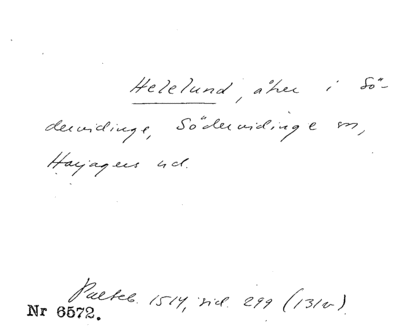 Helelund, åker i Sö-
dervidinge, Södervidinge sn,
Harjagers hd.
Palteb. 1514, sid. 299 (131v).
Nr 6572.